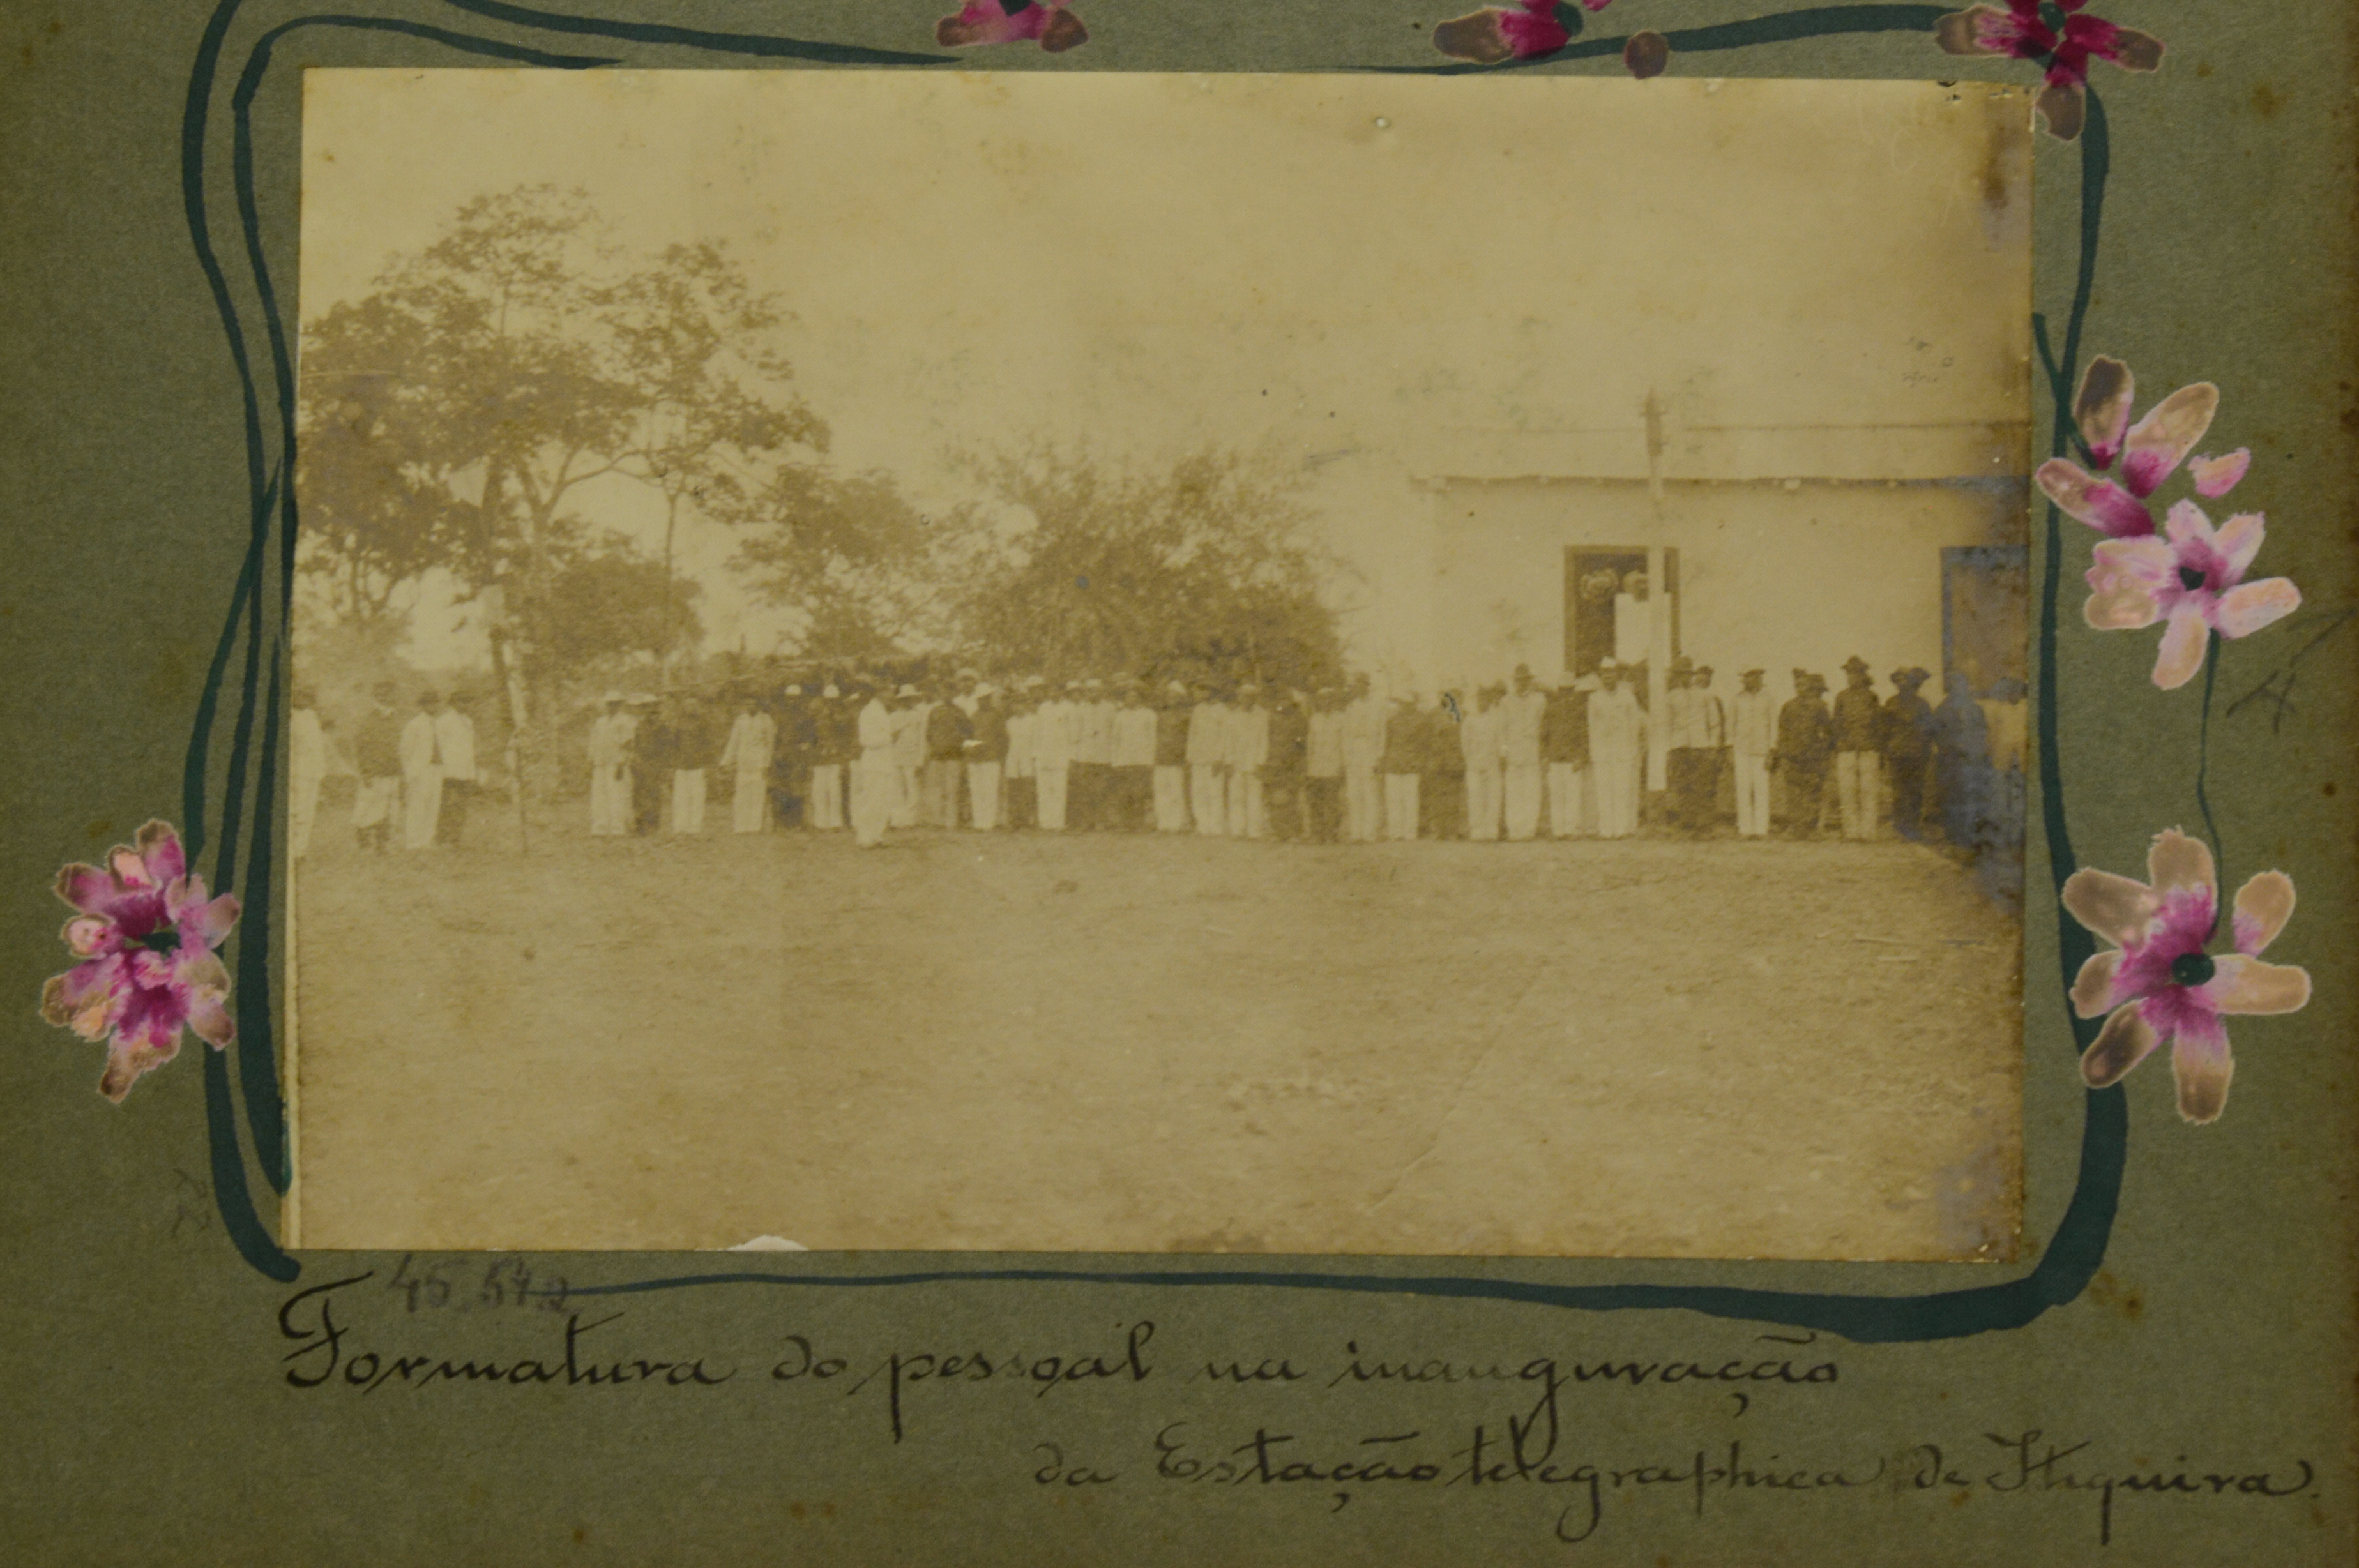 45.572
Formatura do pessoal na inauguração
da Estação telegraphica de Itiquira.